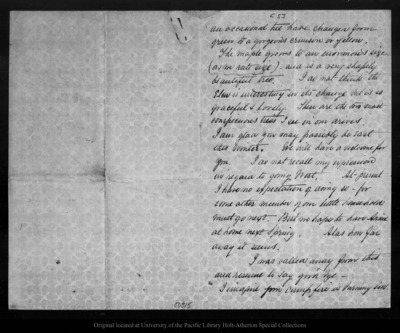 an occasional tree have changed from
green to a gorgeous crimson or yellow.
The maple grows to an enormous size
and is a very shapely
beautiful tree. I do not think the
Elm is interesting in its change but is so
graceful & lovely. These are the two most
conspicuous trees I see in our drives
I am glad you may possibly be East
this Winter. We will have a welcome for
you. I do not recall my expression
in regard to going West. At present
I have no expectation of doing so - for
some other member of our little household
must go next. But we hope to have
at home next Spring. Alas how far
away it seems.
I was called away from this
and resume to say good bye -
I imagine your camp fire is burning low.
Located at University of the Pacific Library Holt-Atherton Special Collections